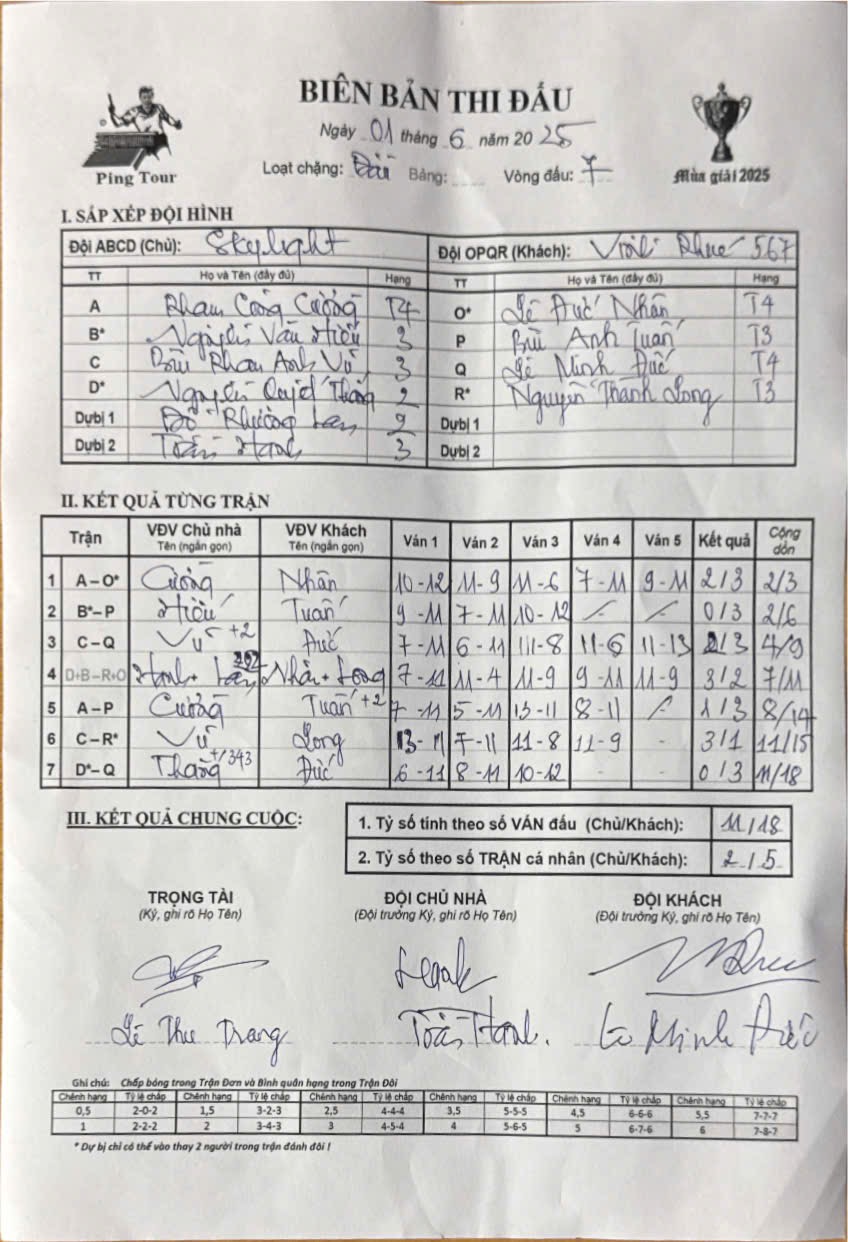 BIÊN BẢN THI ĐẤU
Ngày 01 tháng 6 năm 2025
Ping Tour
Loạt chặng: Đôi Bảng: Vòng đấu: 7
Mùa giải 2025
I. SẮP XẾP ĐỘI HÌNH
Đội ABCD (Chủ): Skylight Đội OPQR (Khách): 567
TT Họ và Tên (đầy đủ) Hạng TT Họ và Tên (đầy đủ) Hạng
A Phạm Công Cường T4 O* Lê Đức Nhân T4
B* Nguyễn Văn Hiếu 3 P Bùi Anh Tuấn T3
C Bùi Phan Anh Vũ 3 Q Lê Minh Đức T4
D* Nguyễn Thắng 2 R* Nguyễn Thành Long T3
Dự bị 1 Đỗ Phường Lan 2 Dự bị 1
Dự bị 2 Toàn Hạnh 3 Dự bị 2
II. KẾT QUẢ TỪNG TRẬN
Trận VĐV Chủ nhà Tên (ngắn gọn) VĐV Khách Tên (ngắn gọn) Ván 1 Ván 2 Ván 3 Ván 4 Ván 5 Kết quả Cộng dồn
1 A – O* Cường Nhân 10-12 11-9 11-6 7-11 9-11 2/3 2/3
2 B* – P Hiếu Tuấn 9-11 7-11 10-12 - - 0/3 2/6
3 C – Q Vũ +2 Đức 7-11 6-11 11-8 11-6 11-13 2/3 4/9
4 D+B – R+O Hạnh + Lan Nhân + Long 7-11 11-4 11-9 9-11 11-9 3/2 7/11
5 A – P Cường Tuấn +2 7-11 5-11 13-11 8-11 - 1/3 8/14
6 C – R* Vũ Long 13-11 7-11 11-8 11-9 - 3/1 11/15
7 D* – Q Thắng +343 Đức 6-11 8-11 10-12 - - 0/3 11/18
III. KẾT QUẢ CHUNG CUỘC:
1. Tỷ số tính theo số VÁN đấu (Chủ/Khách): 11/18
2. Tỷ số theo số TRẬN cá nhân (Chủ/Khách): 2/5
TRỌNG TÀI ĐỘI CHỦ NHÀ ĐỘI KHÁCH
(Ký, ghi rõ Họ Tên) (Đội trưởng Ký, ghi rõ Họ Tên) (Đội trưởng Ký, ghi rõ Họ Tên)
Lê Thu Trang Toàn Hạnh. Lê Minh Đức
Ghi chú: Chấp bóng trong Trận Đơn và Bình quân hạng trong Trận Đôi
Chênh hạng Tỷ lệ chấp Chênh hạng Tỷ lệ chấp Chênh hạng Tỷ lệ chấp Chênh hạng Tỷ lệ chấp Chênh hạng Tỷ lệ chấp Chênh hạng Tỷ lệ chấp
0,5 2-0-2 1,5 3-2-3 2,5 4-4-4 3,5 5-5-5 4,5 6-6-6 5,5 7-7-7
1 2-2-2 2 3-4-3 3 4-5-4 4 5-6-5 5 6-7-6 6 7-8-7
* Dự bị chỉ có thể vào thay 2 người trong trận đánh đôi !